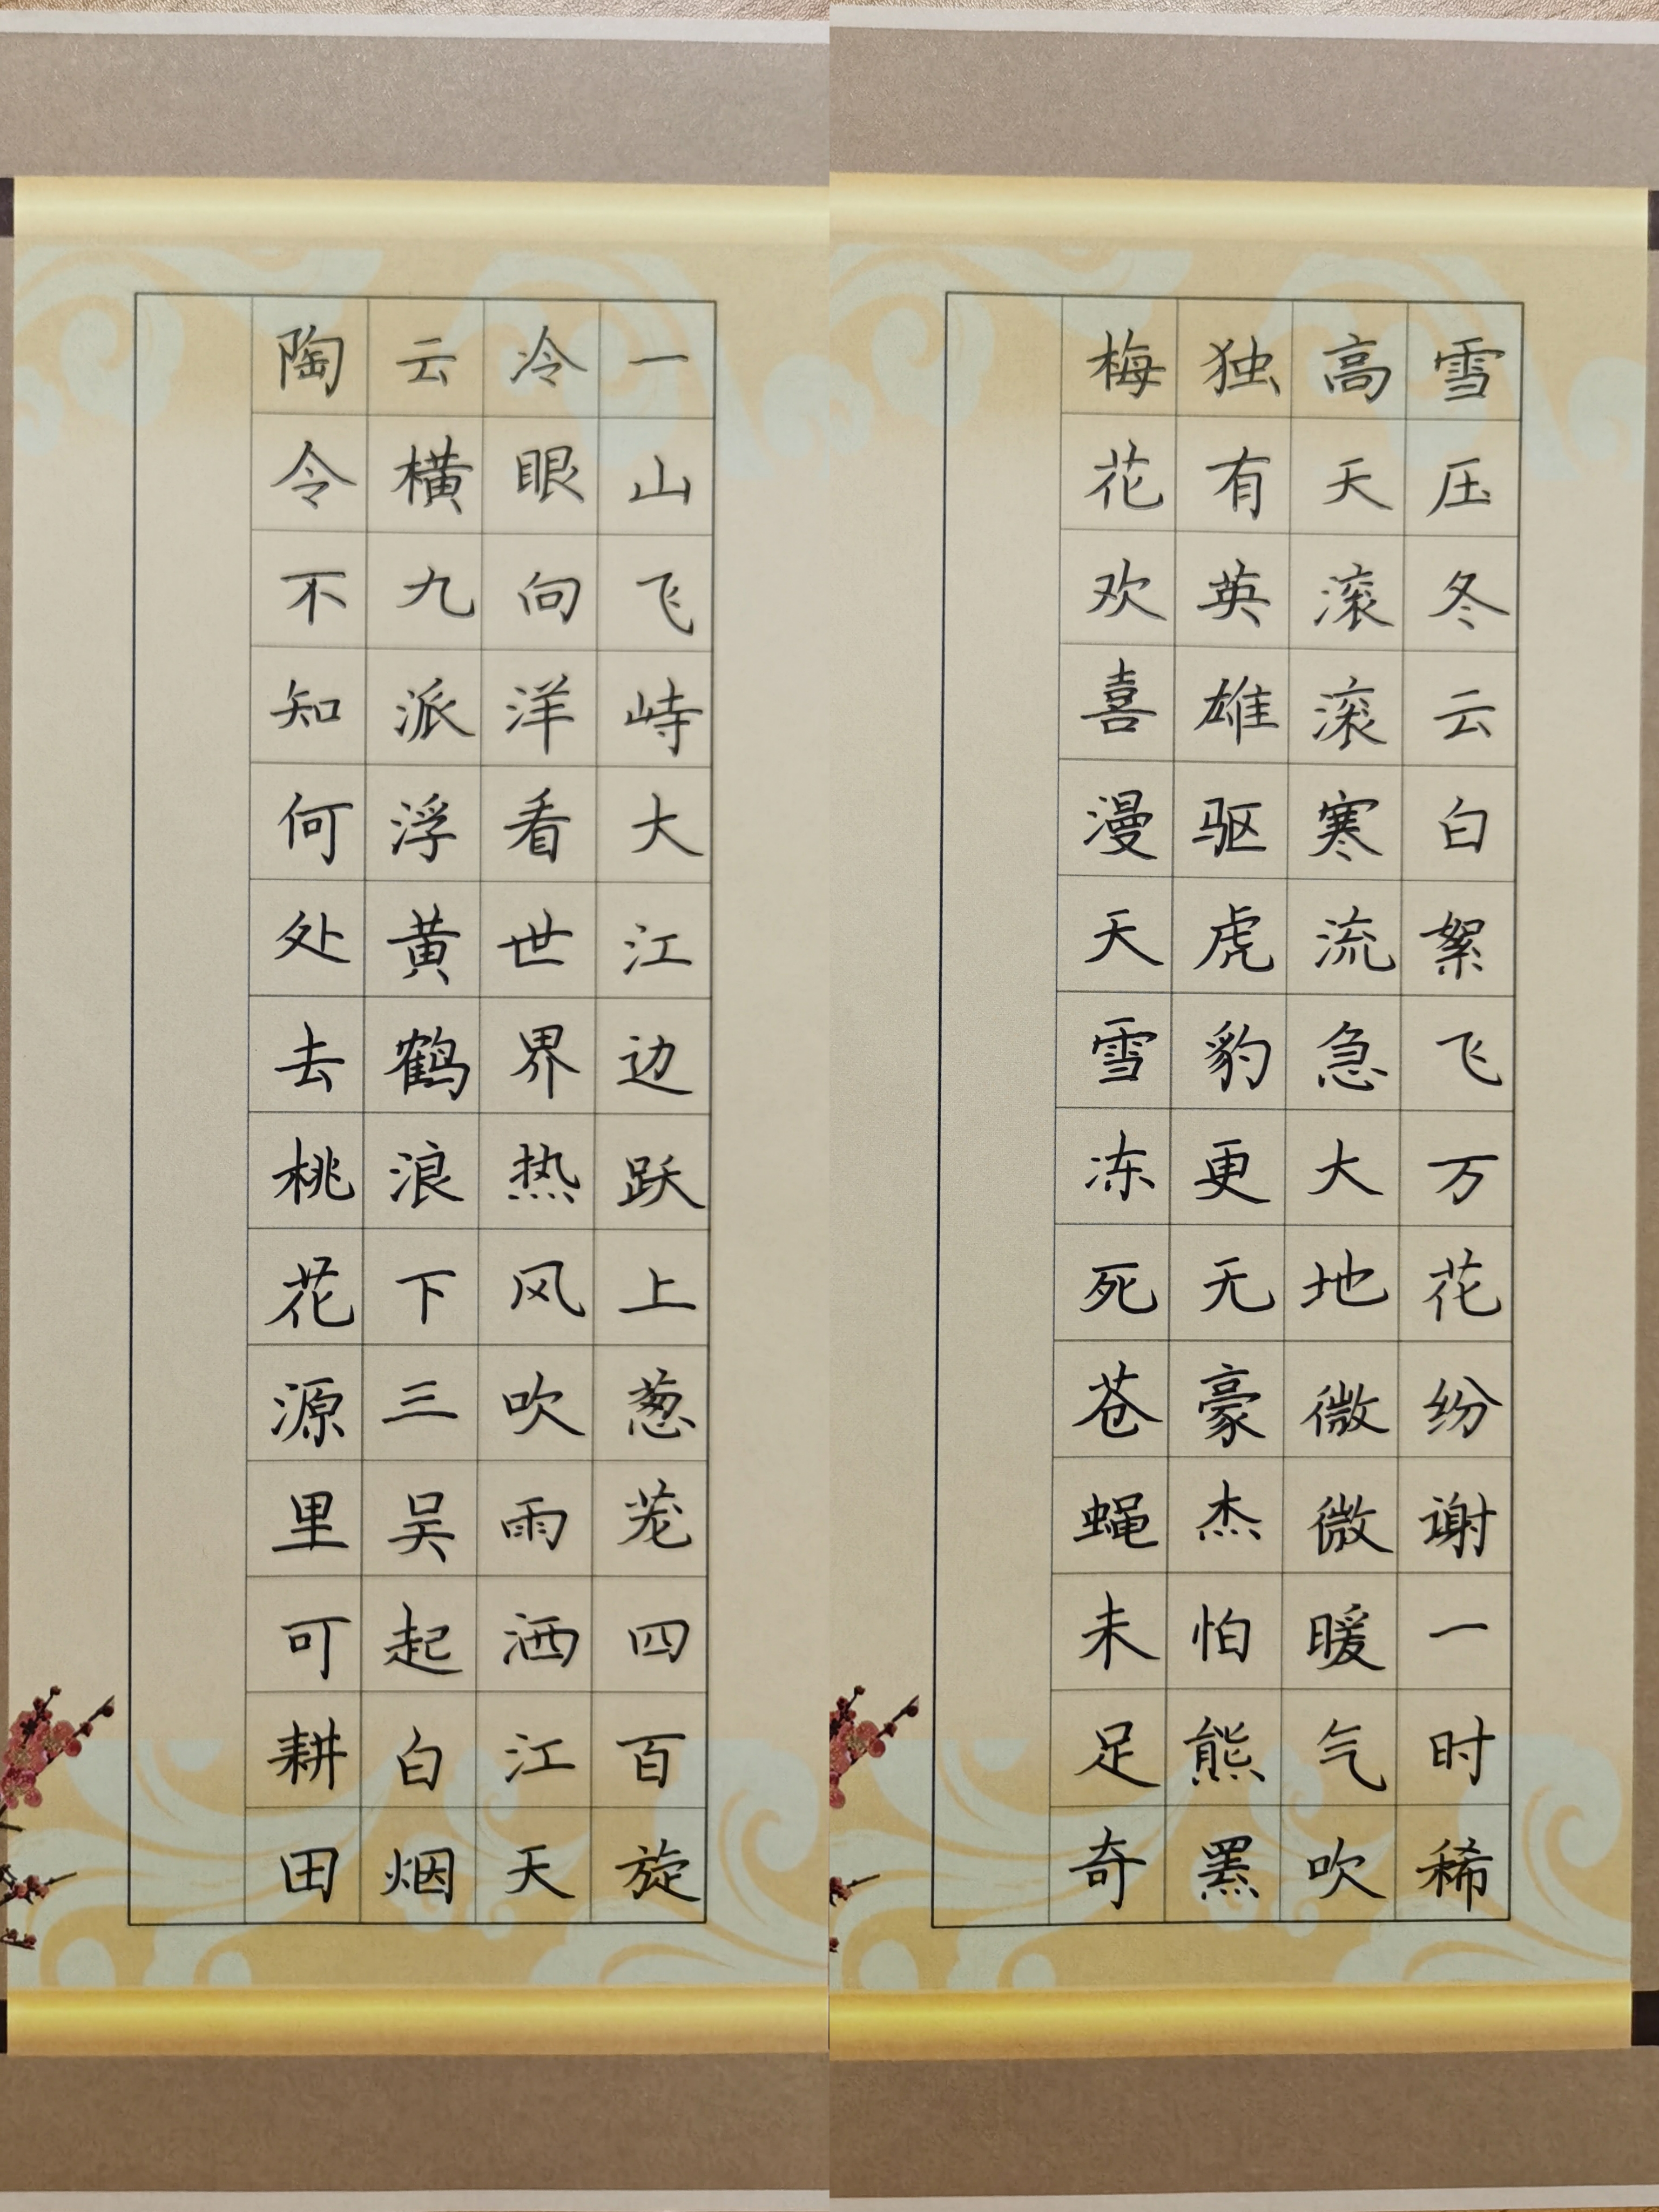 一山飞峙大江边跃上葱茏四百旋
冷眼向洋看世界热风吹雨洒江天
云横九派浮黄鹤浪下三吴起白烟
陶令不知何处去桃花源里可耕田
雪压冬云白絮飞万花纷谢一时稀
高天滚滚寒流急大地微微暖气吹
独有英雄驱虎豹更无豪杰怕熊罴
梅花欢喜漫天雪冻死苍蝇未足奇